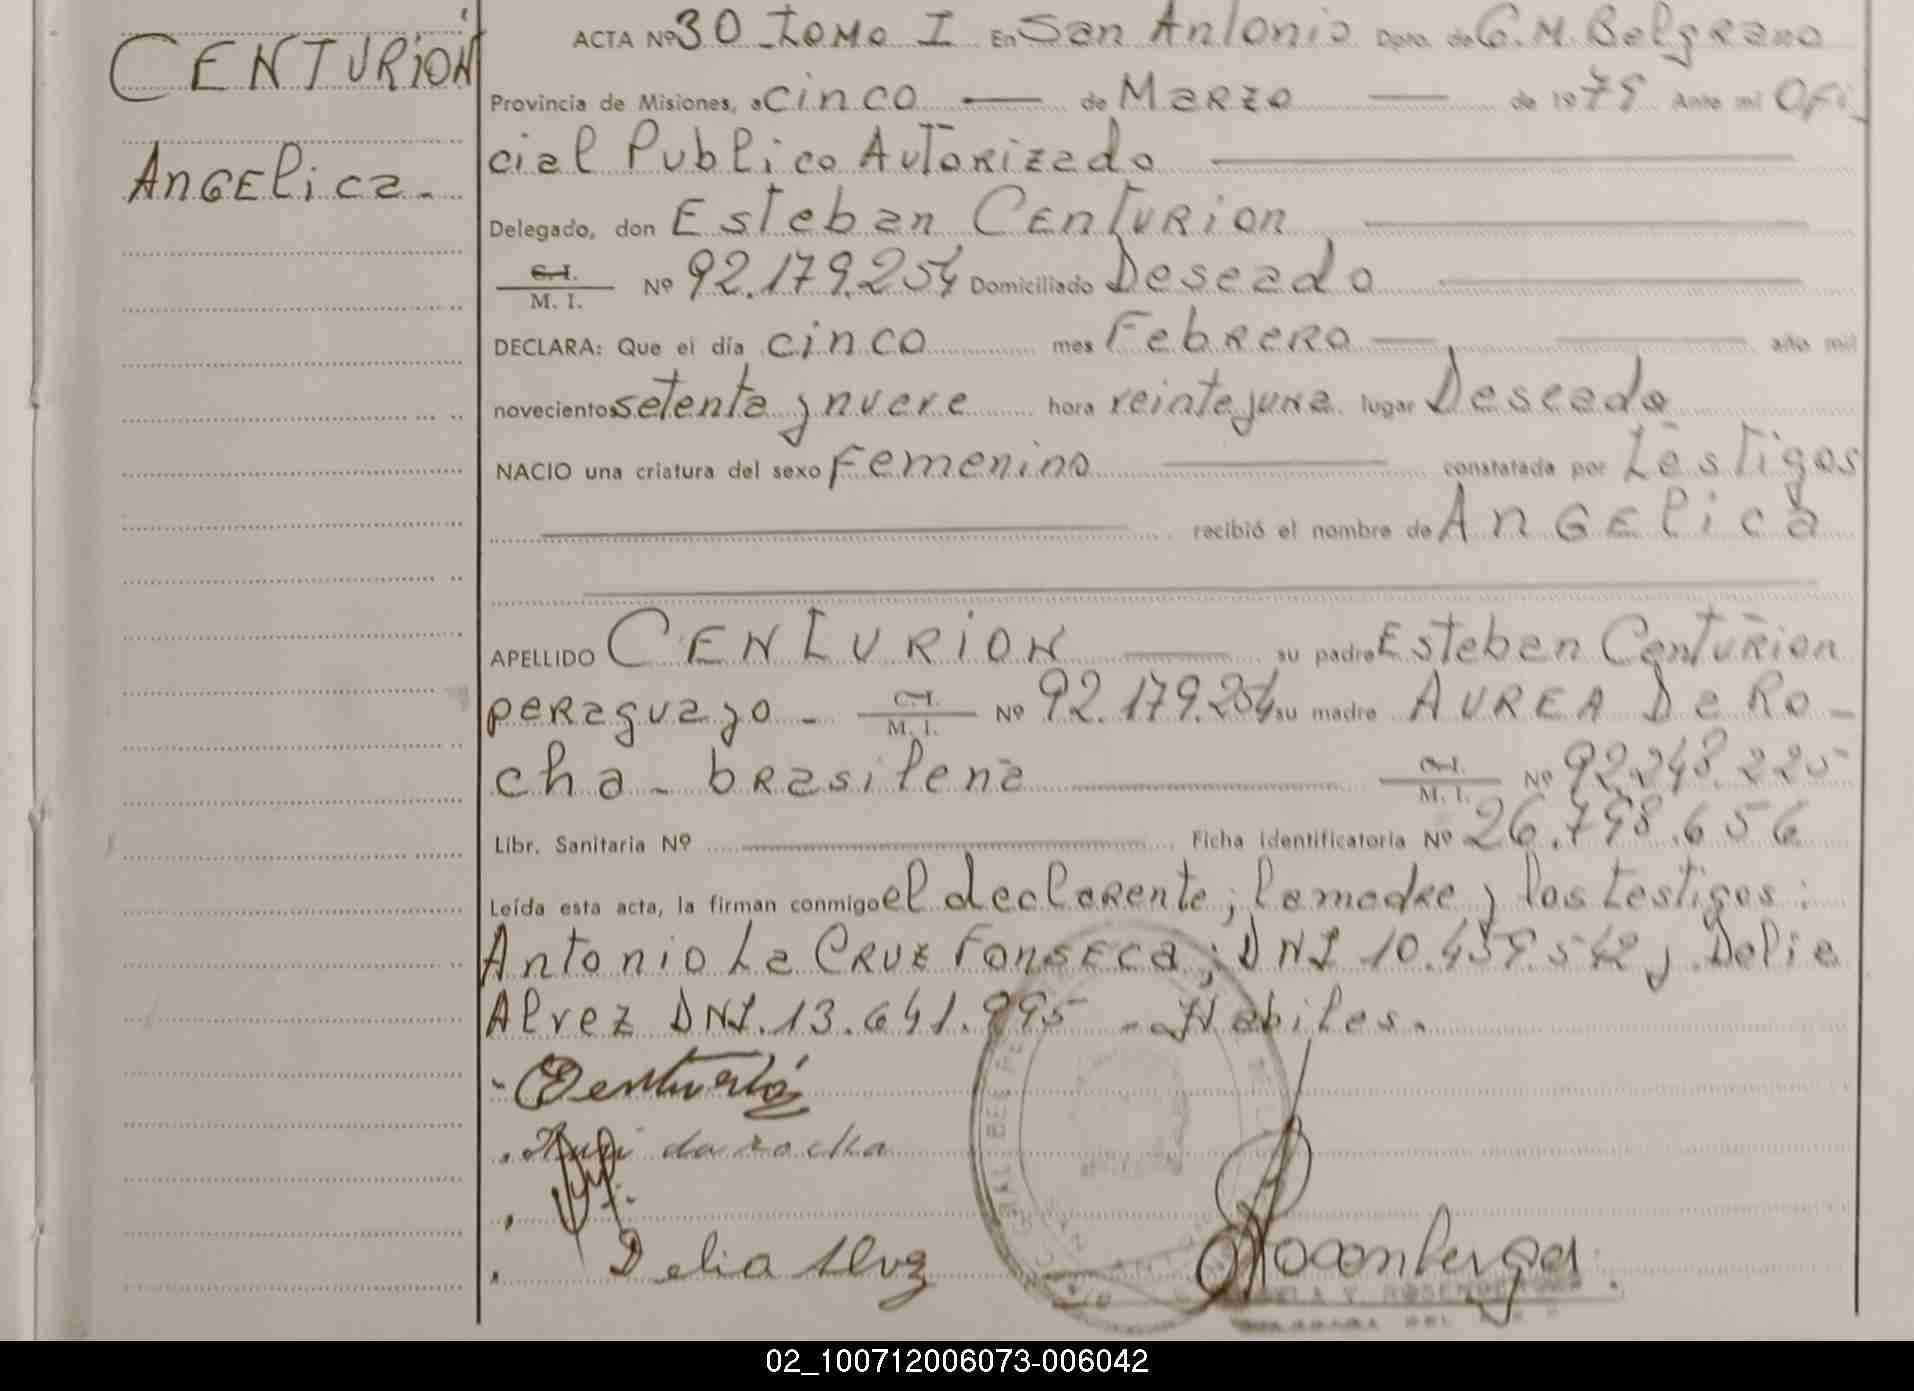 CENTURION
Angelica.
ACTA Nº 30 Tomo I En San Antonio Dpto. de G. M. Belgrano
Provincia de Misiones, a cinco de Marzo de 1979 Ante mi Ofi
cial Publico Autorizado
Delegado, don Esteban Centurion
C. I. / M. I. Nº 92.179.254 Domiciliado Deseado
DECLARA: Que el día cinco mes Febrero año mil
novecientos setenta y nueve hora veinte y una lugar Deseado
NACIO una criatura del sexo Femenino constatada por Testigos
recibió el nombre de Angelica
APELLIDO CENTURION su padre Esteban Centurion
paraguayo - C. I. / M. I. Nº 92.179.254 su madre AUREA De Ro-
cha - brasilena C. I. / M. I. Nº 92.248.225
Libr. Sanitaria Nº Ficha identificatoria Nº 26.798.656
Leída esta acta, la firman conmigo el declarente; la madre y los testigos:
Antonio La Cruz Fonseca; DNI 10.459.542 y Delia
Alvez DNI. 13.641.995 - Habiles.
Centurión
da rocha
Delia Alvez
Rosenberger
02_100712006073-006042